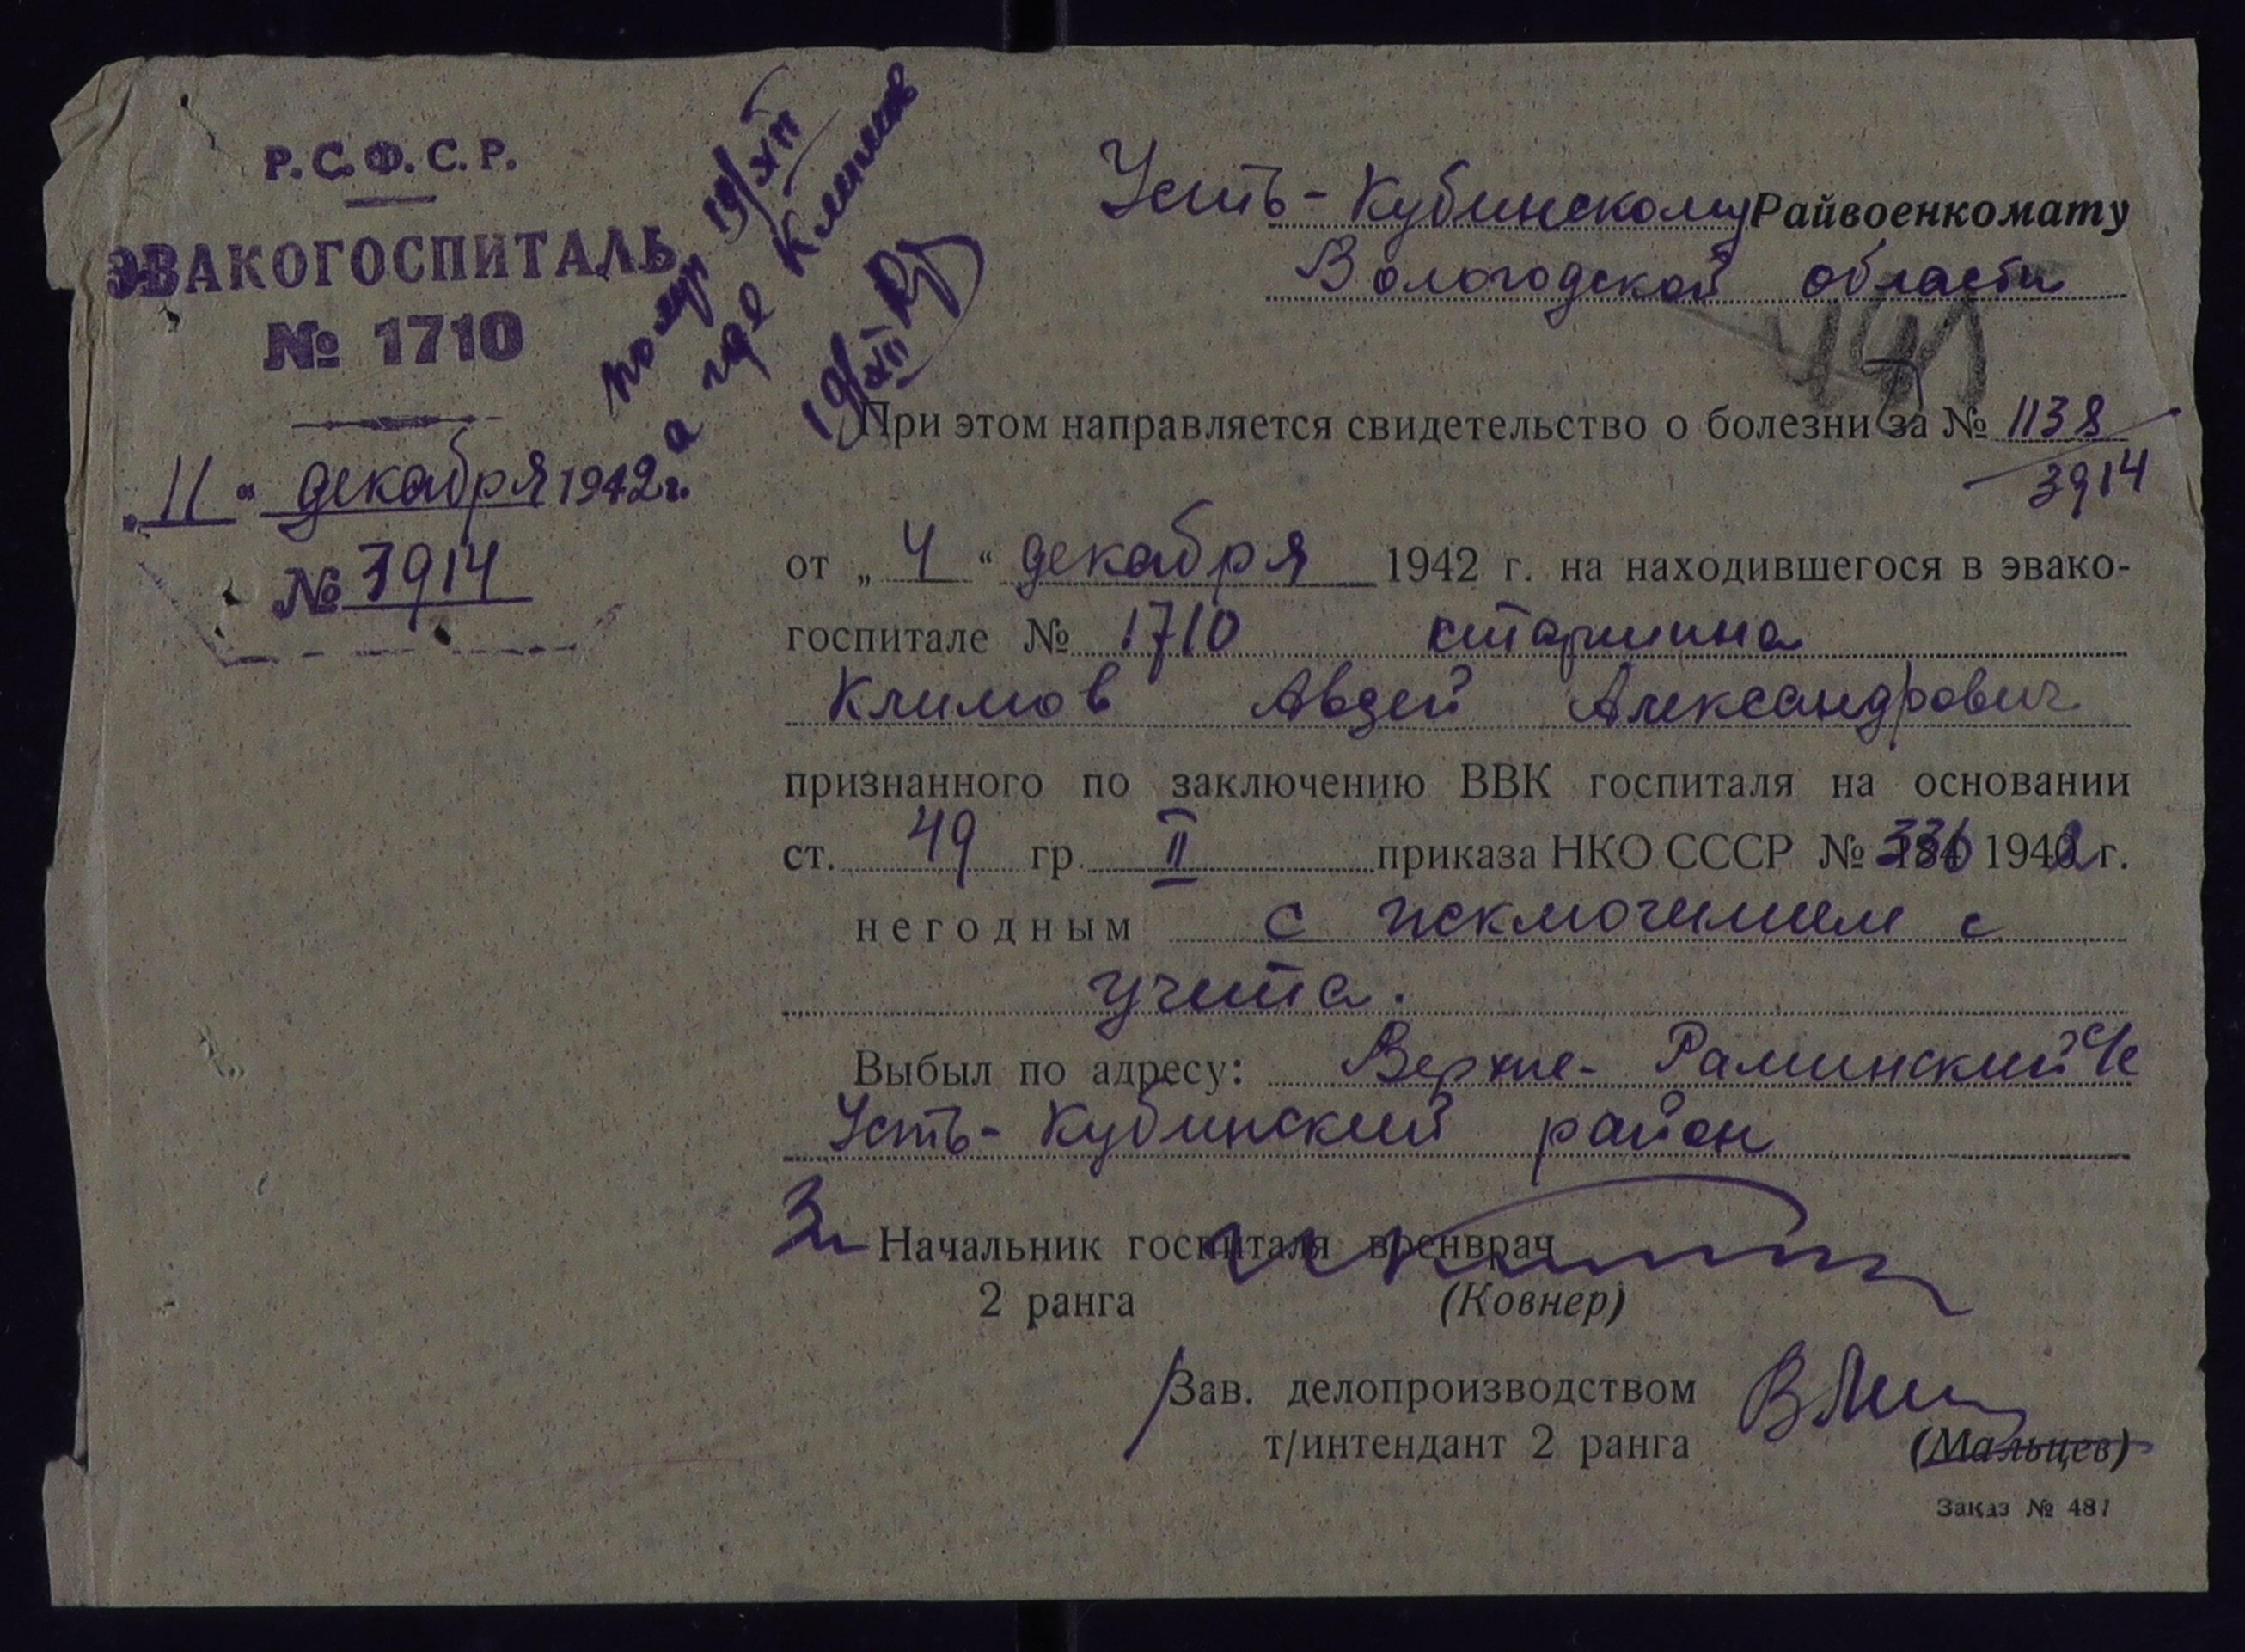 Р.С.Ф.С.Р.
ЭВАКОГОСПИТАЛЬ
№ 1710
„11“ декабря 1942 г.
№ 3914
получ 19/XII
а где Климов
19/XII
Усть-Кубинскому Райвоенкомату
Вологодской области
При этом направляется свидетельство о болезни за № 1138
3914
от „4“ декабря 1942 г. на находившегося в эвако-
госпитале № 1710 старшина
Климов Авдей Александрович
признанного по заключению ВВК госпиталя на основании
ст. 49 гр. II приказа НКО СССР № 336 1942 г.
негодным с исключением с
учета.
Выбыл по адресу: Верхне-Раминский с/с
Усть-Кубинский район
Зн Начальник госпиталя военврач
2 ранга (Ковнер)
Зав. делопроизводством
т/интендант 2 ранга (Мальцев)
Заказ № 481